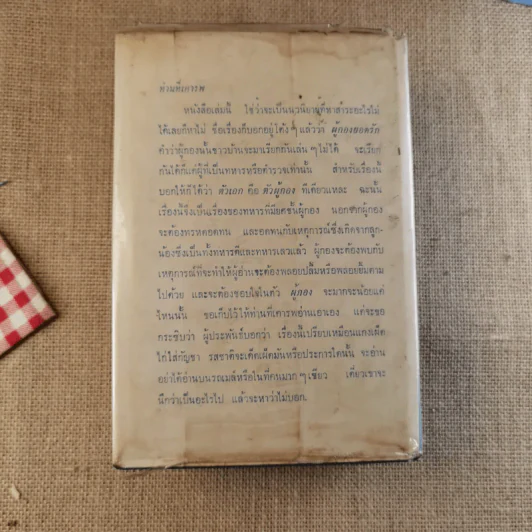 ท่านที่เคารพ
หนังสือเล่มนี้ ใช่ว่าจะเป็นนวนิยายที่หาสาระอะไรไม่
ได้เลยก็หาไม่ ชื่อเรื่องก็บอกอยู่โต้งๆ แล้วว่า ผู้กองยอดรัก
คำว่าผู้กองนั้นชาวบ้านจะมาเรียกกันเล่นๆ ไม่ได้ จะเรียก
กันได้ก็แต่ผู้ที่เป็นทหารหรือตำรวจเท่านั้น สำหรับเรื่องนี้
บอกให้ก็ได้ว่า ตัวเอก คือ ตัวผู้กอง ทีเดียวแหละ ฉะนั้น
เรื่องนี้จึงเป็นเรื่องของทหารที่มียศชั้นผู้กอง นอกจากผู้กอง
จะต้องทรหดอดทน และอดทนกับเหตุการณ์ซึ่งเกิดจากลูก-
น้องซึ่งเป็นทั้งทหารดีและทหารเลวแล้ว ผู้กองจะต้องพบกับ
เหตุการณ์ที่จะทำให้ผู้อ่านจะต้องพลอยปลื้มหรือพลอยยิ้มตาม
ไปด้วย และจะต้องชอบใจในตัว ผู้กอง จะมากจะน้อยแค่
ไหนนั้น ขอเก็บไว้ให้ท่านที่เคารพอ่านเอาเอง แต่จะขอ
กระซิบว่า ผู้ประพันธ์บอกว่า เรื่องนี้เปรียบเหมือนแกงเผ็ด
ไก่ใส่กัญชา รสชาติจะเด็ดเผ็ดมันหรือประการใดนั้น จะอ่าน
อย่าได้อ่านบนรถเมล์หรือในที่คนมากๆ เชียว เดี๋ยวเขาจะ
นึกว่าเป็นอะไรไป แล้วจะหาว่าไม่บอก.